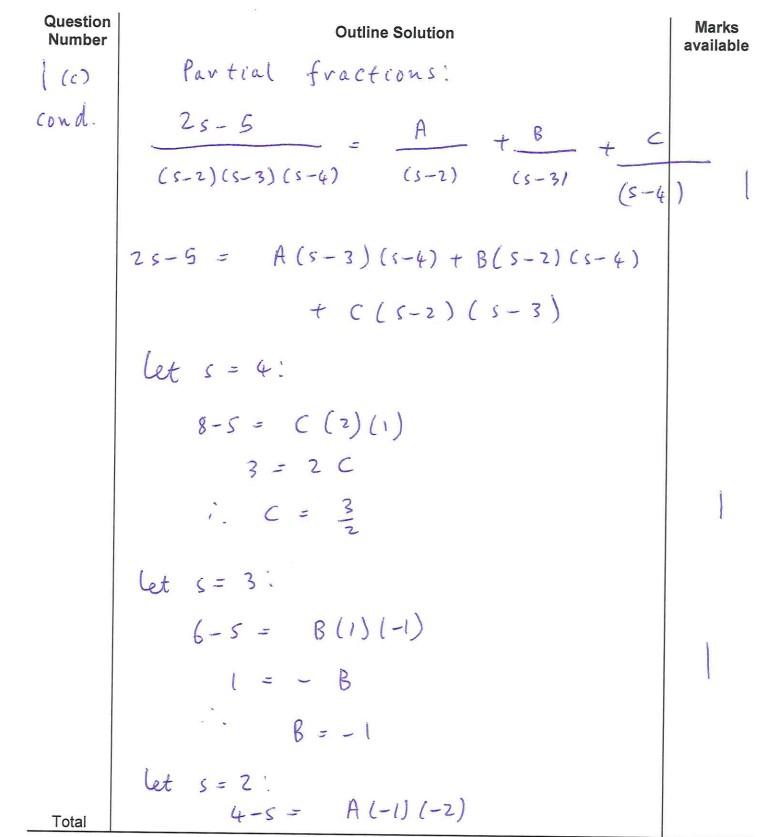 Question Number Outline Solution Marks available
1 (c) Partial fractions:
cond.
2s - 5 / (s-2)(s-3)(s-4) = A / (s-2) + B / (s-3) + C / (s-4) 1
2s - 5 = A(s-3)(s-4) + B(s-2)(s-4)
+ C(s-2)(s-3)
let s = 4:
8-5 = C(2)(1)
3 = 2C
∴ C = 3/2 1
let s = 3:
6-5 = B(1)(-1)
1 = - B 1
∴ B = -1
let s = 2:
4-5 = A(-1)(-2)
Total